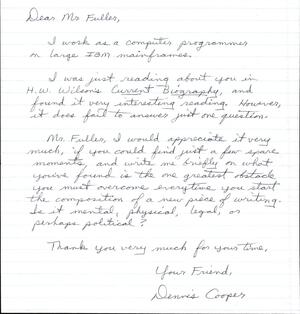 Dear Mr Fuller,
I work as a computer programmer
on large IBM mainframes.
I was just reading about you in
H.W. Wilson's Current Biography, and
found it very interesting reading. However,
it does fail to answer just one question.
Mr. Fuller, I would appreciate it very
much, if you could find just a few spare
moments, and write me briefly on what
you've found is the one greatest obstacle
you must overcome everytime you start
the composition of a new piece of writing.
Is it mental, physical, legal, or
perhaps political?
Thank you very much for your time,
Your Friend,
Dennis Cooper